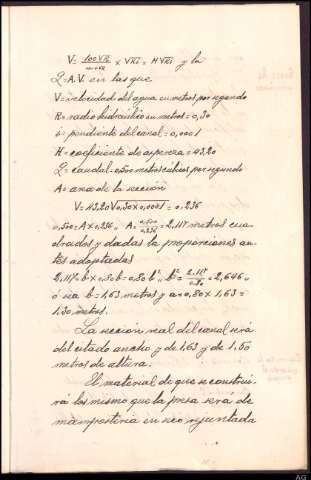 V = 100√R / m+√R × √Ri = M√Ri y la
Q = A.V. en las que
V = velocidad del agua en metros por segundo
R = radio hidráulico en metros = 0,30
i = pendiente del canal = 0,0001
M = coeficiente de aspereza = 43,20
Q = caudal = 0,500 metros cúbicos por segundo
A = area de la sección
V = 43,20 √0,30 × 0,0001 = 0,236
0,500 = A × 0,236 „ A = 0,500 / 0,236 = 2,117 metros cua-
drados y dadas la proporciones an-
tes adoptadas
2,117 = b × 0,80 b = 0,80 b² „ b² = 2,117 / 0,80 = 2,646 „
ó sea b = 1,63 metros y a = 0,80 × 1,63 =
1,30 metros.
La sección real del canal será
del citado ancho y de 1,63 y de 1.50
metros de altura.
El material de que se construi-
rá los mismo que la presa será de
mampostería en seco rejuntada
AG